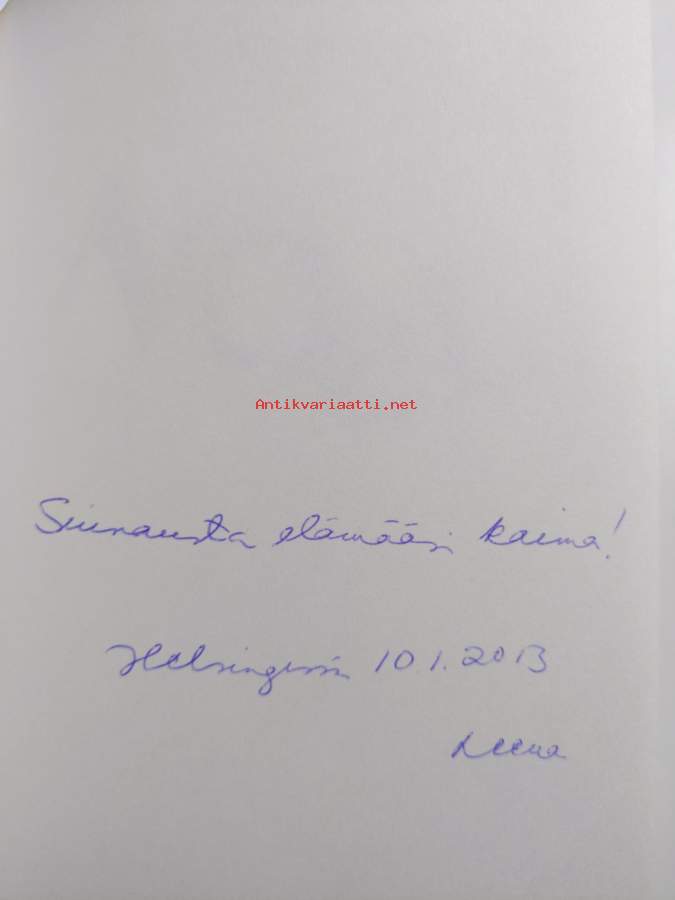 Antikvariaatti.net
Siunausta elämääsi kaima!
Helsingissä 10.1.2013
Leena